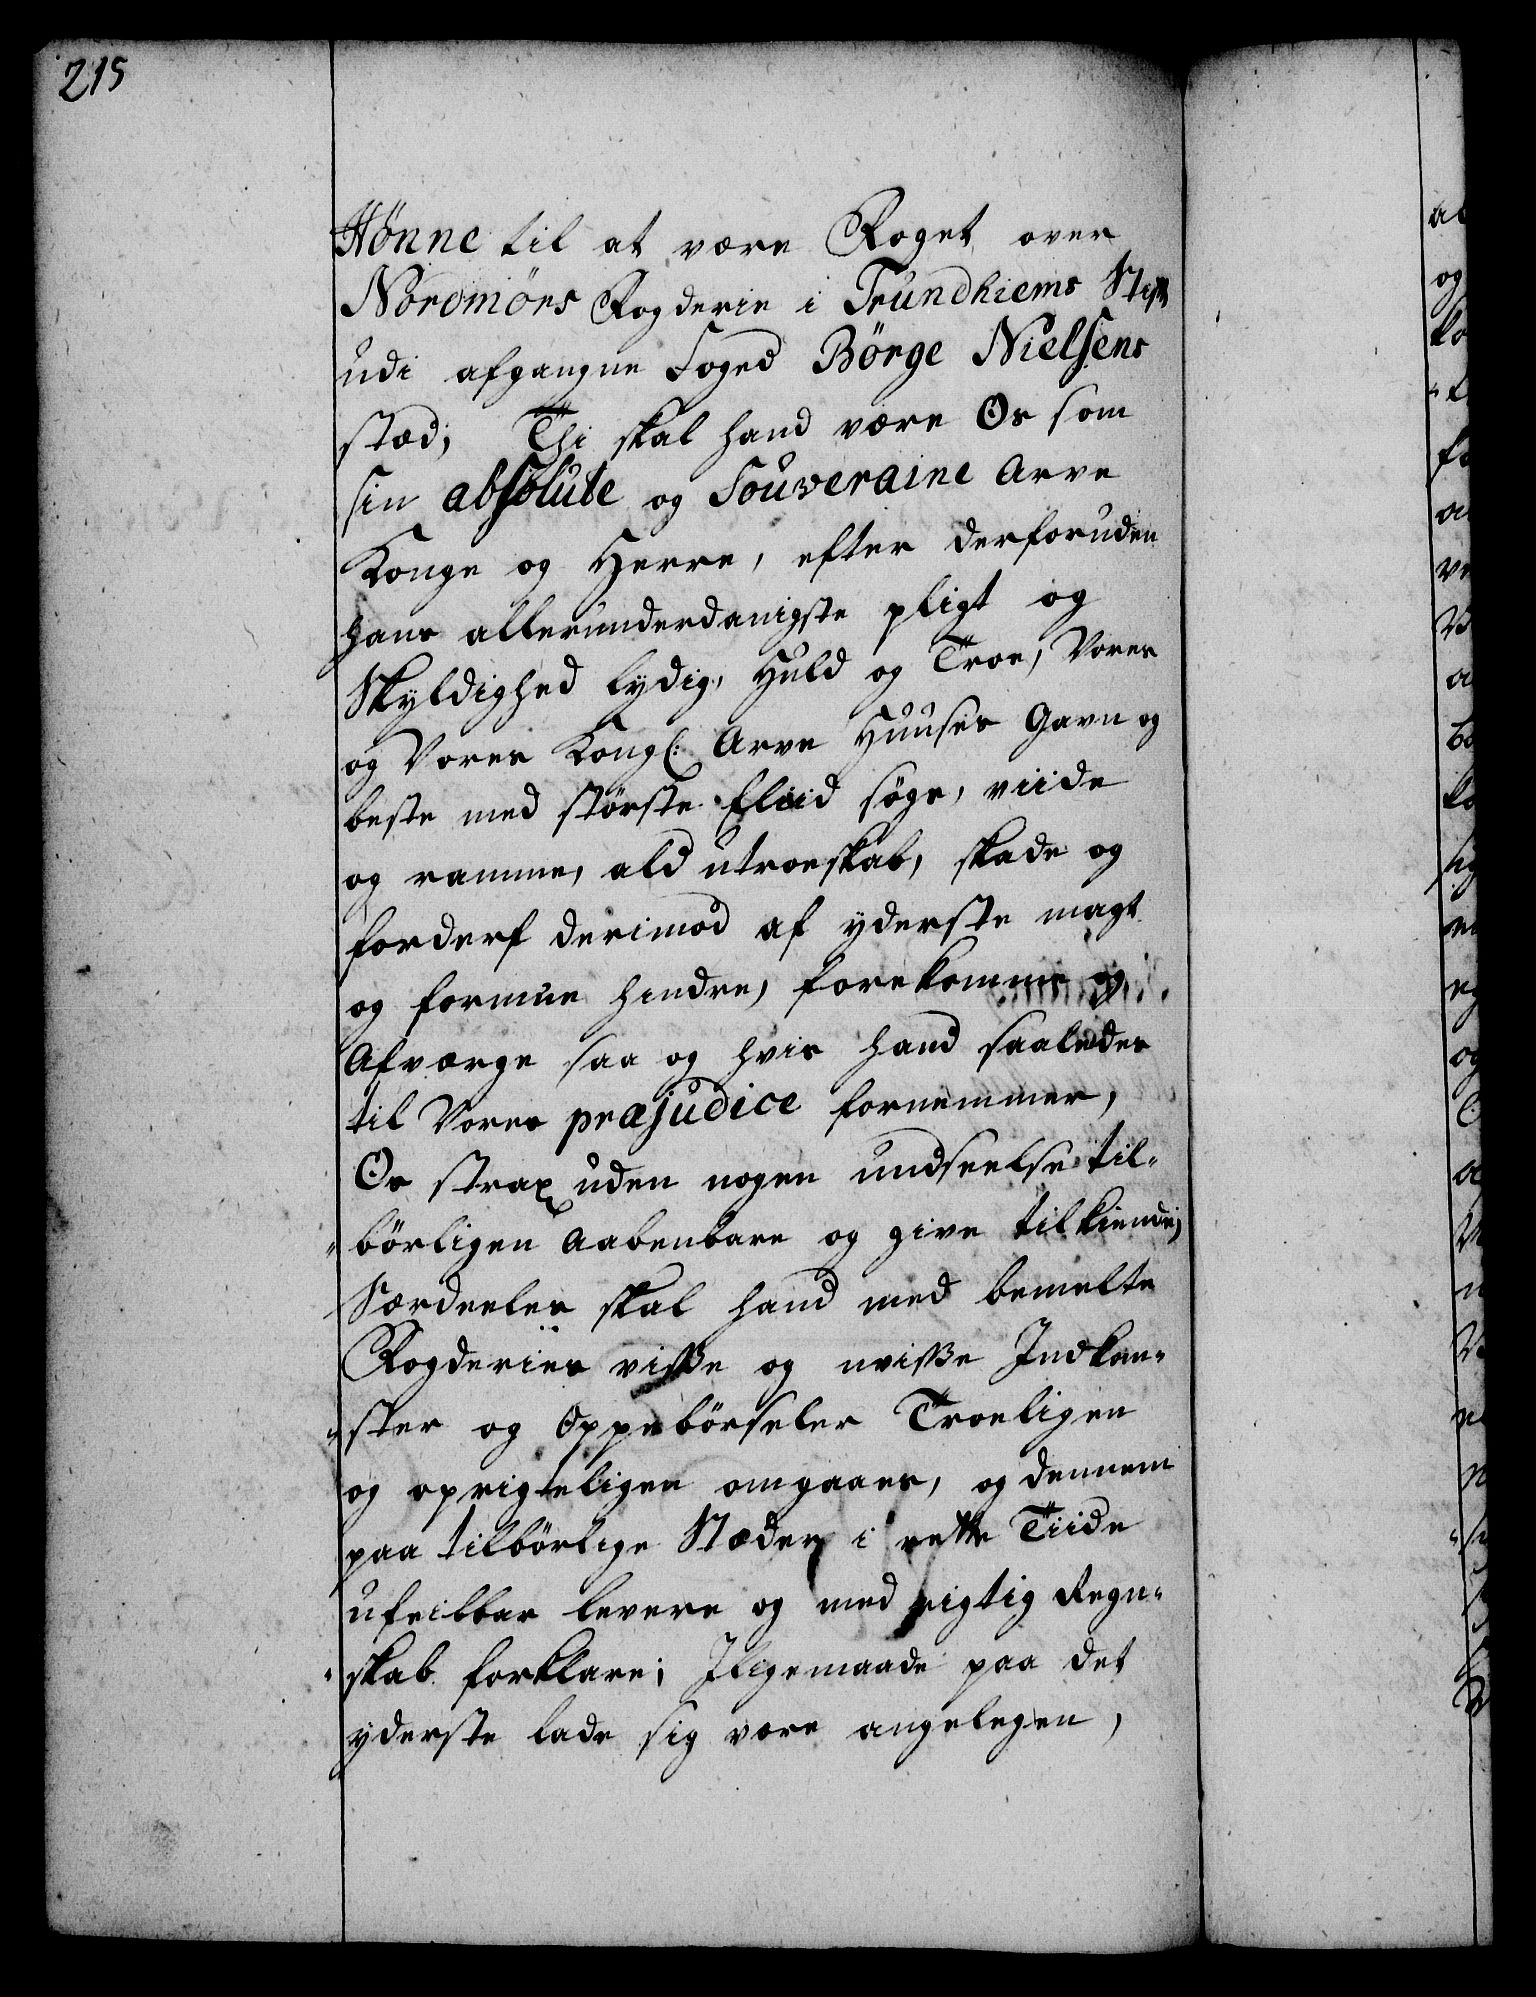 215
Hönne til at være Foget over
Nordmörs Fogderie i Trundhiems Stift
udi afgangne Foged Börge Nielsens
stæd; Thi skal hand være Os som
sin absolute og Souveraine Arve
Konge og Herre, efter derforuden
hans allerunderdanigste pligt og
Skyldighed lydig, Huld og Troe, Vores
og Vores Kongl: Arve Huuses Gavn og
beste med störste Fliid söge, viide
og ramme, ald utroeskab, skade og
forderf derimod af yderste magt
og formue hindre, forekomme og
Afværge saa og hvis hand saaledes
til Vores præjudice fornemmer,
Os strax uden nogen undseelse til-
börligen Aabenbare og give tilkiende;
Særdeeles skal hand med bemelte
Fogderies viße og uviße Indkom-
ster og Oppebörseler Troeligen
og oprigteligen omgaaes, og dennem
paa tilbörlige Stæder i rette Tiide
ufeilbar levere og med rigtig Regn-
skab forklare; Iligemaade paa det
yderste lade sig være angelegen,